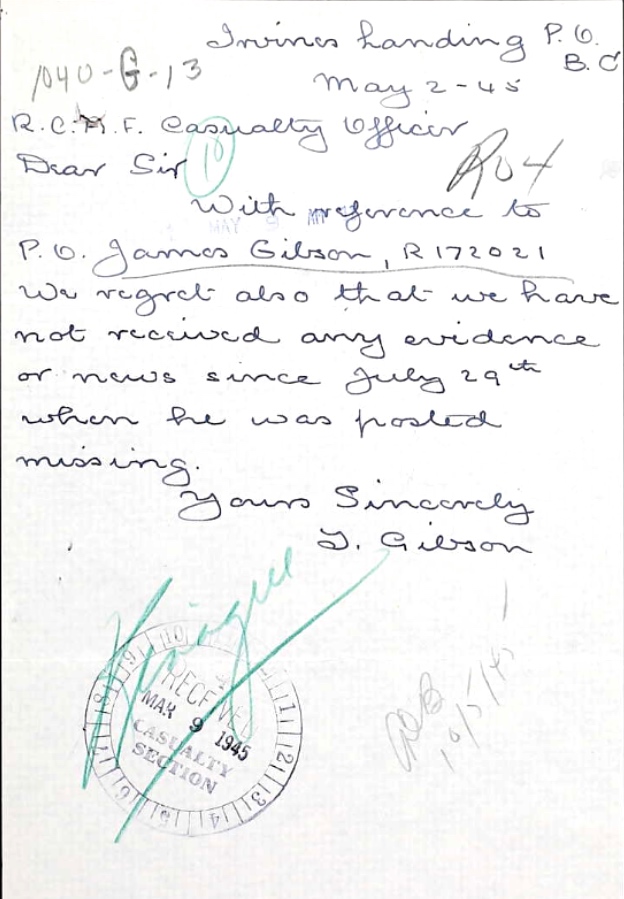 Irvines Landing P.O.
B.C
1040-G-13
May 2-45
R.C.A.F. Casualty Officer
Dear Sir
10
R04
With reference to
MAY 9
P.O. James Gibson, R172021
We regret also that we have
not received any evidence
or news since July 29th
when he was posted
missing.
Yours Sincerely
J. Gibson
RECEIVED
MAY 9 1945
CASUALTY
SECTION
10/5/45